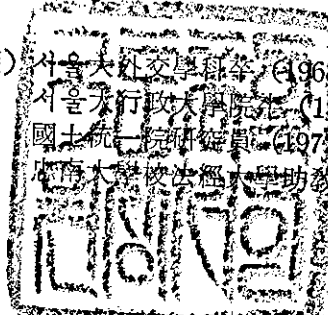 ) 서울大外交學科卒 (196
서울大行政大學院卒 (1
國土統一院硏究員 (197
忠南大學校法經大學助敎